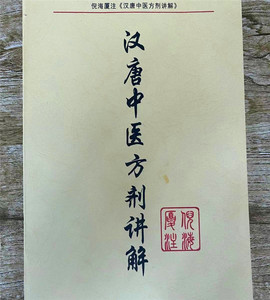 倪海厦注《汉唐中医方剂讲解》
汉唐中医方剂讲解
倪海
厦注